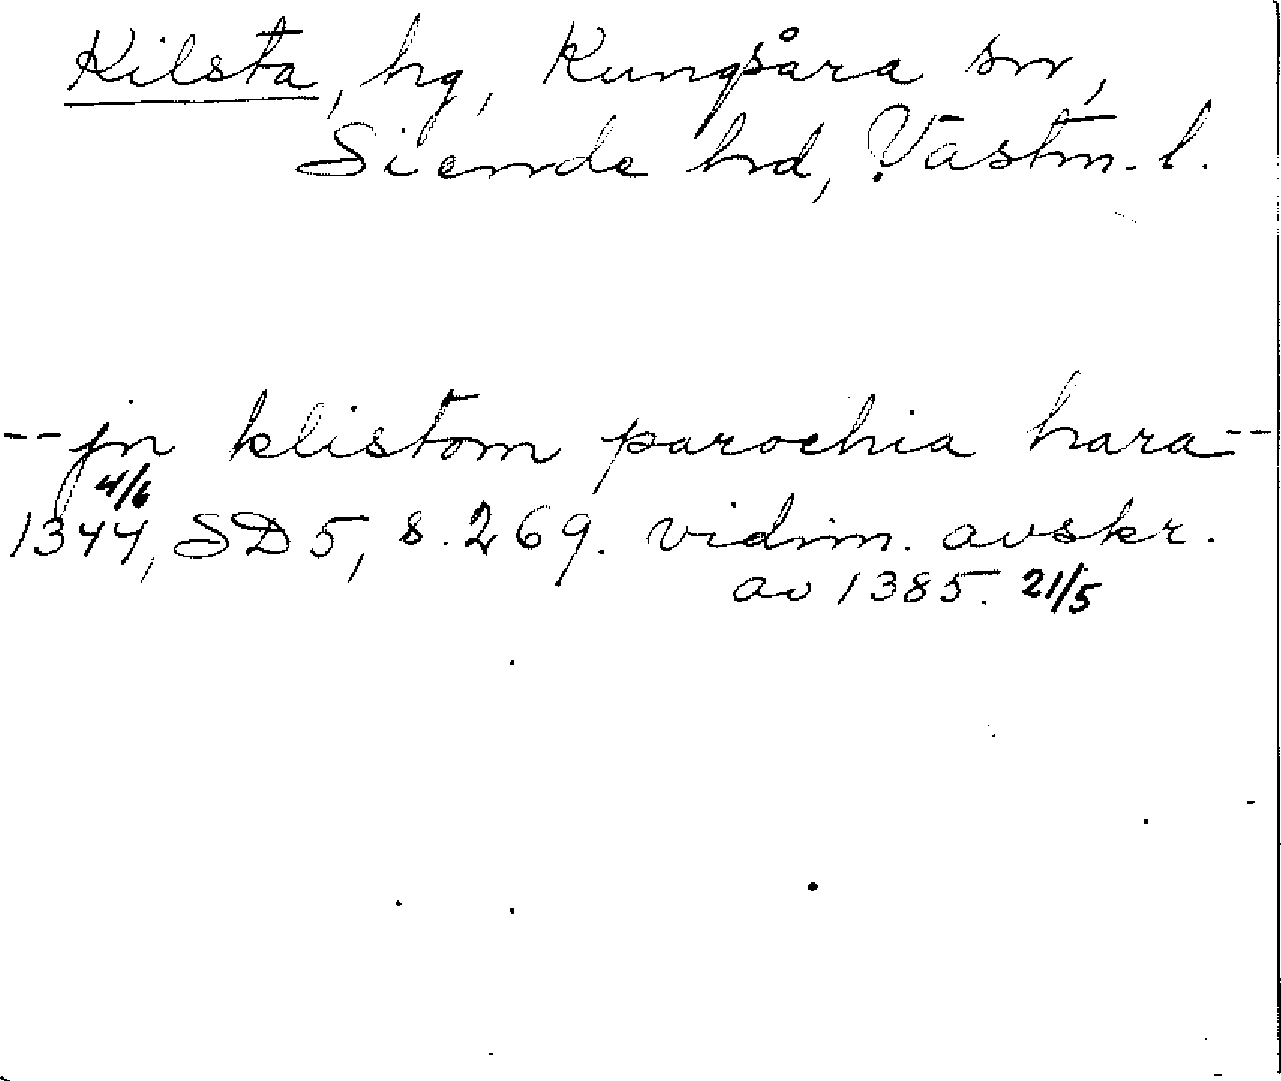 Kilsta, hg, Kungsåra sn,
Siende hd, Västm. l.
-- jn klistom parochia hara --
4/6
1344, SD 5, s. 269. vidim. avskr.
av 1385. 21/5